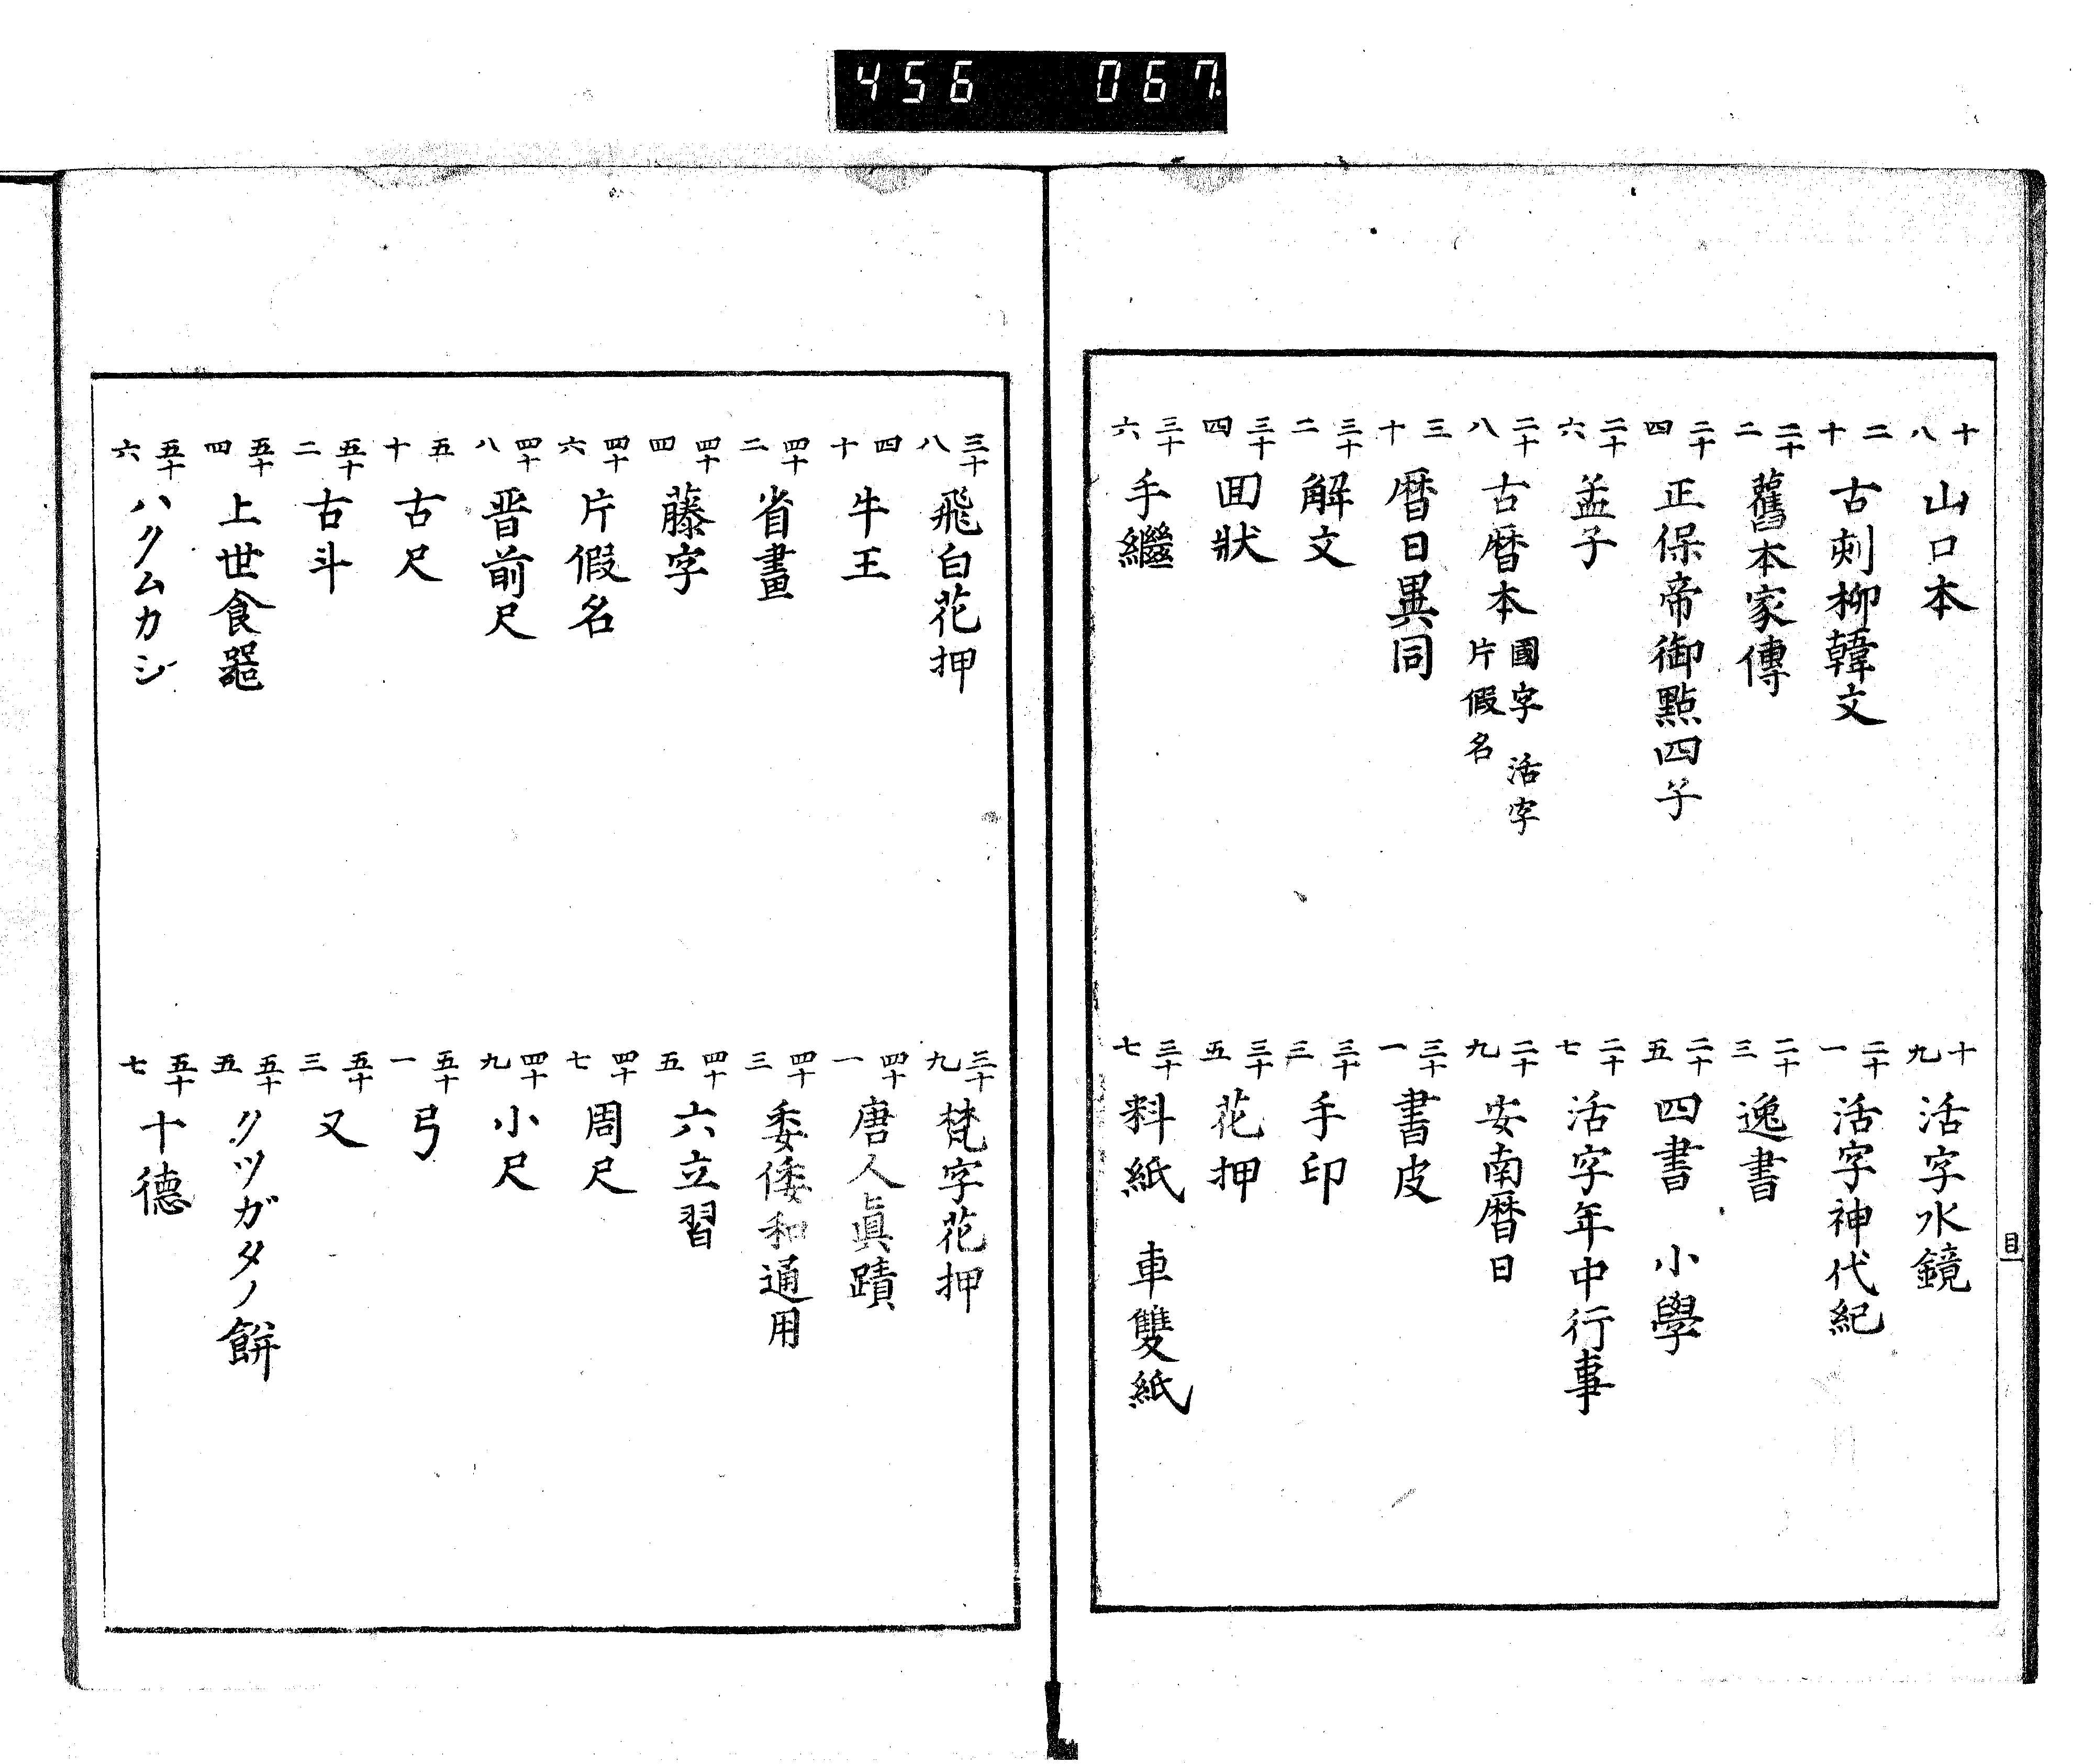 456 067.
十八 山口本
十九 活字水鏡
二十 古刻柳韓文
二十一 活字神代紀
二十二 舊本家傳
二十三 逸書
二十四 正保帝御點四子
二十五 四書 小學
二十六 孟子
二十七 活字年中行事
二十八 古暦本 國字 活字 片假名
二十九 安南暦日
三十 暦日異同
三十一 書皮
三十二 解文
三十三 手印
三十四 回狀
三十五 花押
三十六 手繼
三十七 料紙 車雙紙
目一
三十八 飛白花押
三十九 梵字花押
四十 牛王
四十一 唐人眞蹟
四十二 省畫
四十三 委倭和通用
四十四 藤字
四十五 六立習
四十六 片假名
四十七 周尺
四十八 晋前尺
四十九 小尺
五十 古尺
五十一 弓
五十二 古斗
五十三 又
五十四 上世食器
五十五 クツガタノ餅
五十六 ハクムカシ
五十七 十德